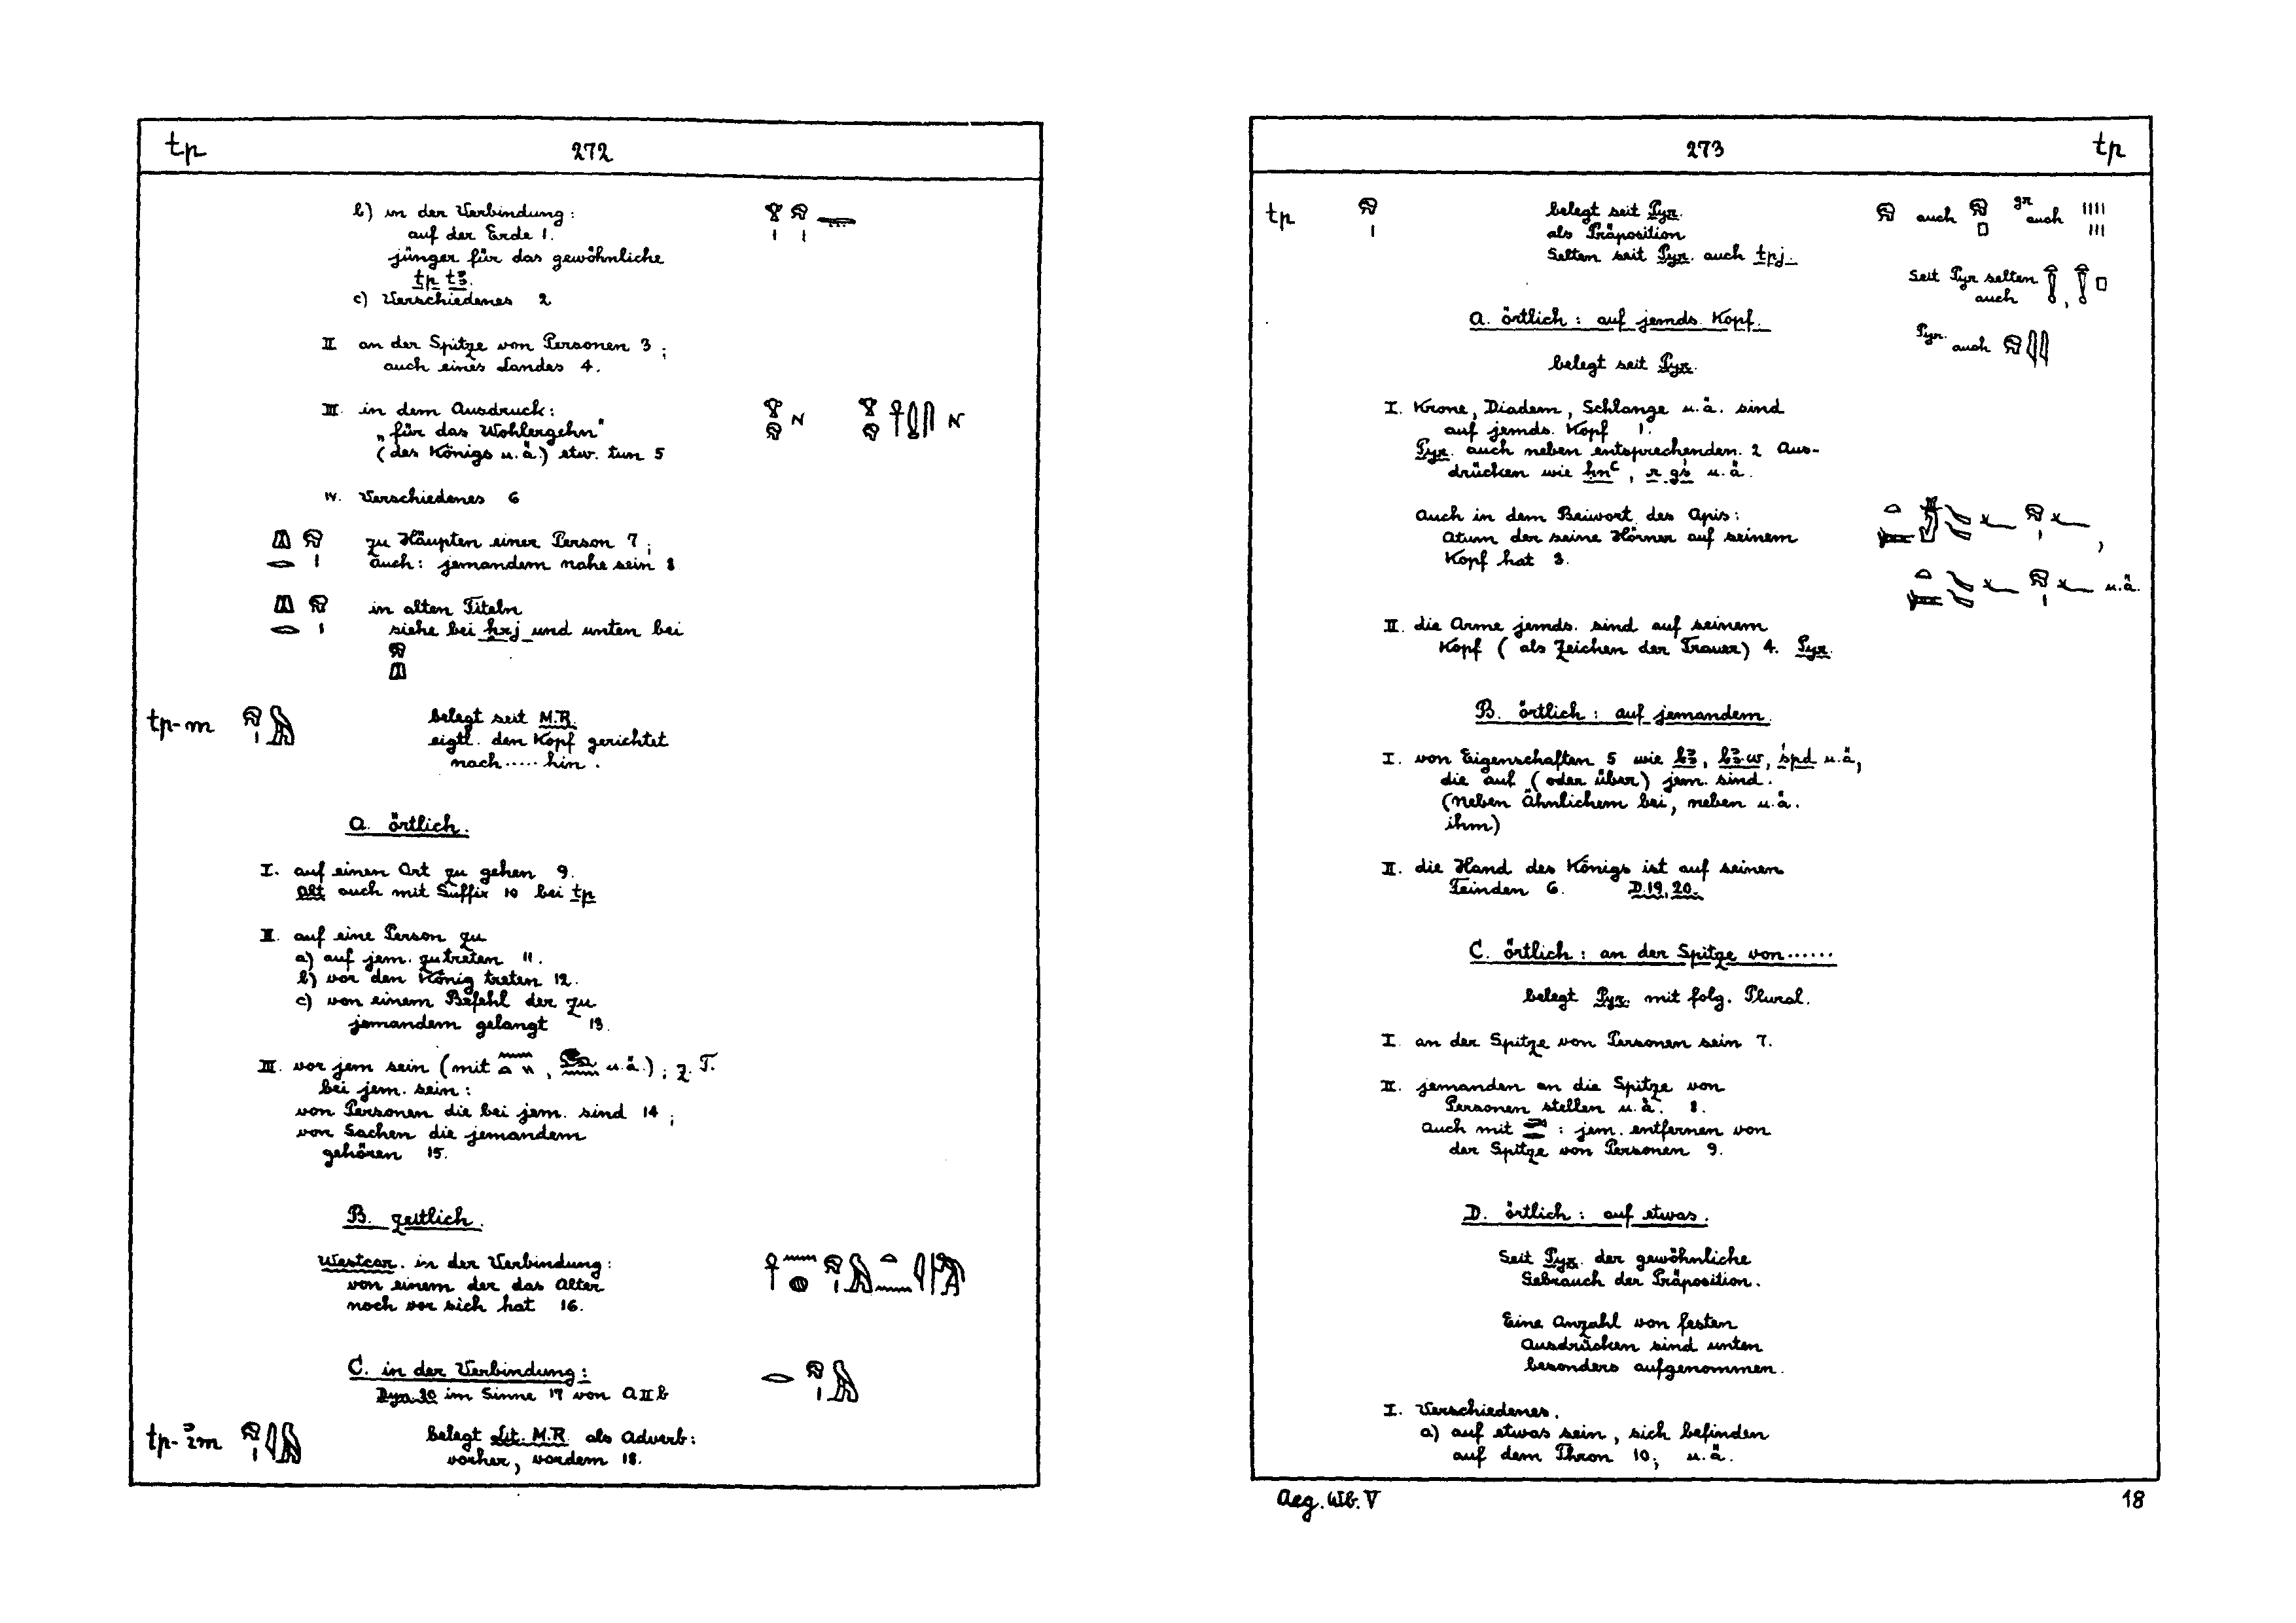 tp 272
b) in der Verbindung: 𓁷𓏤 𓁶𓏤 𓇾
auf der Erde 1.
jünger für das gewöhnliche
tp tꜣ.
c) Verschiedenes 2
II an der Spitze von Personen 3;
auch eines Landes 4.
III. in dem Ausdruck: 𓁷𓁶 N 𓁷𓁶 𓋹𓇋𓋴 N
„für das Wohlergehn"
(des Königs u.ä.) etw. tun 5
IV. Verschiedenes 6
zu Häupten einer Person 7;
auch: jemandem nahe sein 8
in alten Titeln
siehe bei ẖrj und unten bei
tp-m 𓁶𓏤𓅓 belegt seit M.R.
eigtl. den Kopf gerichtet
nach ..... hin.
A. örtlich.
I. auf einen Ort zu gehen 9.
Alt auch mit Suffix 10 bei tp
II. auf eine Person zu
a) auf jem. zutreten 11.
b) vor den König treten 12.
c) von einem Befehl der zu
jemandem gelangt 13.
III. vor jem sein (mit , u.ä.); z. T.
bei jem. sein:
von Personen die bei jem. sind 14;
von Sachen die jemandem
gehören 15.
B. zeitlich.
Westcar. in der Verbindung:
von einem der das Alter
noch vor sich hat 16.
C. in der Verbindung: 𓂋 𓁶𓏤𓅓
Dyn. 20 im Sinne 17 von A II b
tp-ꜣm 𓁶𓏤𓇋𓅓 belegt Lit. M.R. als Adverb:
vorher, vordem 18.
273 tp
tp 𓁶𓏤 belegt seit Pyr. 𓁶 auch 𓁶𓊪 gr auch 𓏽𓏼
als Präposition
Selten seit Pyr. auch tpj.
Seit Pyr selten
auch
A. örtlich: auf jemds. Kopf.
Pyr. auch 𓁶𓇋𓇋
belegt seit Pyr.
I. Krone, Diadem, Schlange u.ä. sind
auf jemds. Kopf 1.
Pyr. auch neben entsprechenden. 2 Aus-
drücken wie ḥnꜥ, r gś u.ä.
Auch in dem Beiwort des Apis:
Atum der seine Hörner auf seinem
Kopf hat 3.
u.ä.
II. die Arme jemds. sind auf seinem
Kopf (als Zeichen der Trauer) 4. Pyr.
B. örtlich: auf jemandem.
I. von Eigenschaften 5 wie bꜣ, bꜣ·w, śpd u.ä,
die auf (oder über) jem. sind.
(neben Ähnlichem bei, neben u.ä.
ihm)
II. die Hand des Königs ist auf seinen
Feinden 6. D.19, 20.
C. örtlich: an der Spitze von ......
belegt Pyr. mit folg. Plural.
I. an der Spitze von Personen sein 7.
II. jemanden an die Spitze von
Personen stellen u.ä. 8.
auch mit : jem. entfernen von
der Spitze von Personen 9.
D. örtlich: auf etwas.
Seit Pyr. der gewöhnliche
Gebrauch der Präposition.
Eine Anzahl von festen
Ausdrücken sind unten
besonders aufgenommen.
I. Verschiedenes.
a) auf etwas sein, sich befinden
auf dem Thron 10; u.ä.
Aeg. Wb. V 18